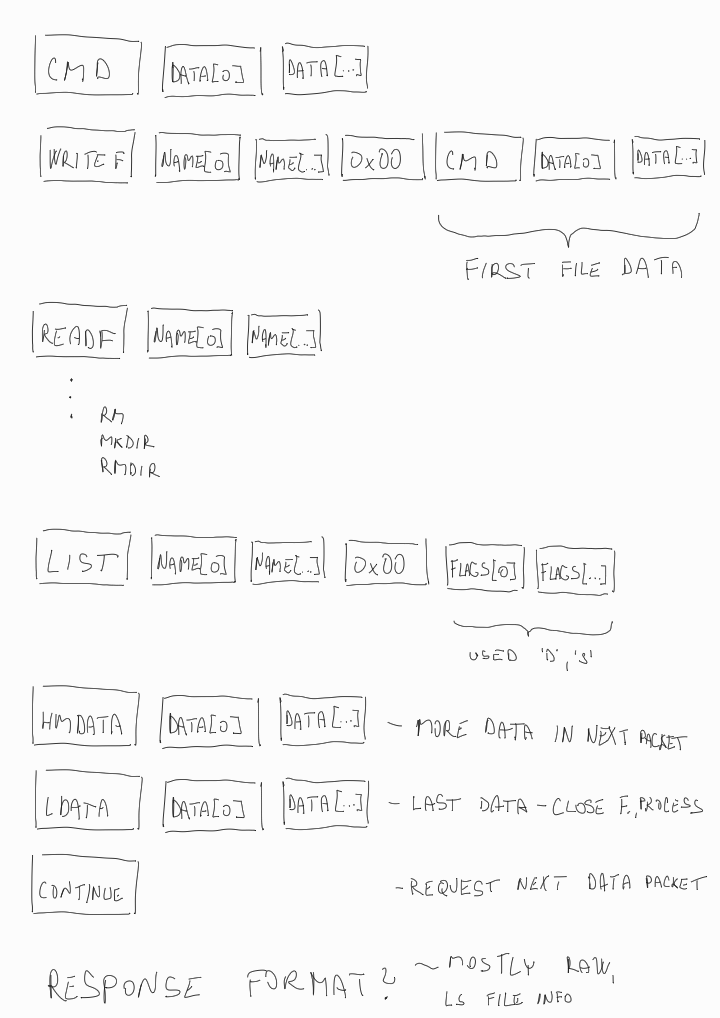 CMD DATA[0] DATA[...]
WRITEF NAME[0] NAME[...] 0x00 CMD DATA[0] DATA[...]
FIRST FILE DATA
READF NAME[0] NAME[...]
RM
MKDIR
RMDIR
LIST NAME[0] NAME[...] 0x00 FLAGS[0] FLAGS[...]
USED 'D', 'S'
HMDATA DATA[0] DATA[...] - MORE DATA IN NEXT PACKET
LDATA DATA[0] DATA[...] - LAST DATA - CLOSE F., PROCESS
CONTINUE - REQUEST NEXT DATA PACKET
RESPONSE FORMAT? ~ MOSTLY RAW,
LS FILE INFO